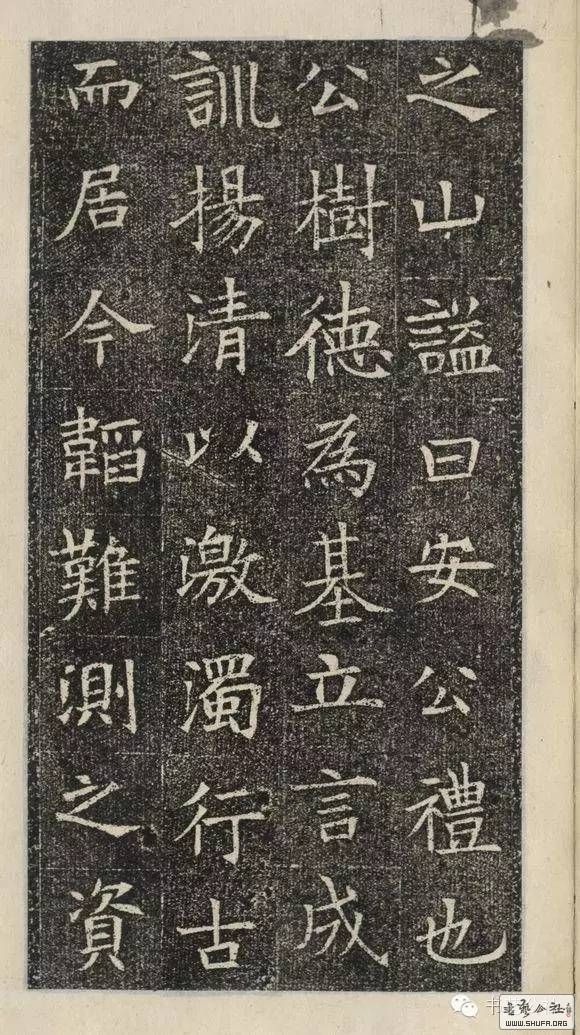 之山謚曰安公禮也
公樹德為基立言成
訓揚清以激濁行古
而居今韜難測之資
书
WWW.SHUFA.ORG